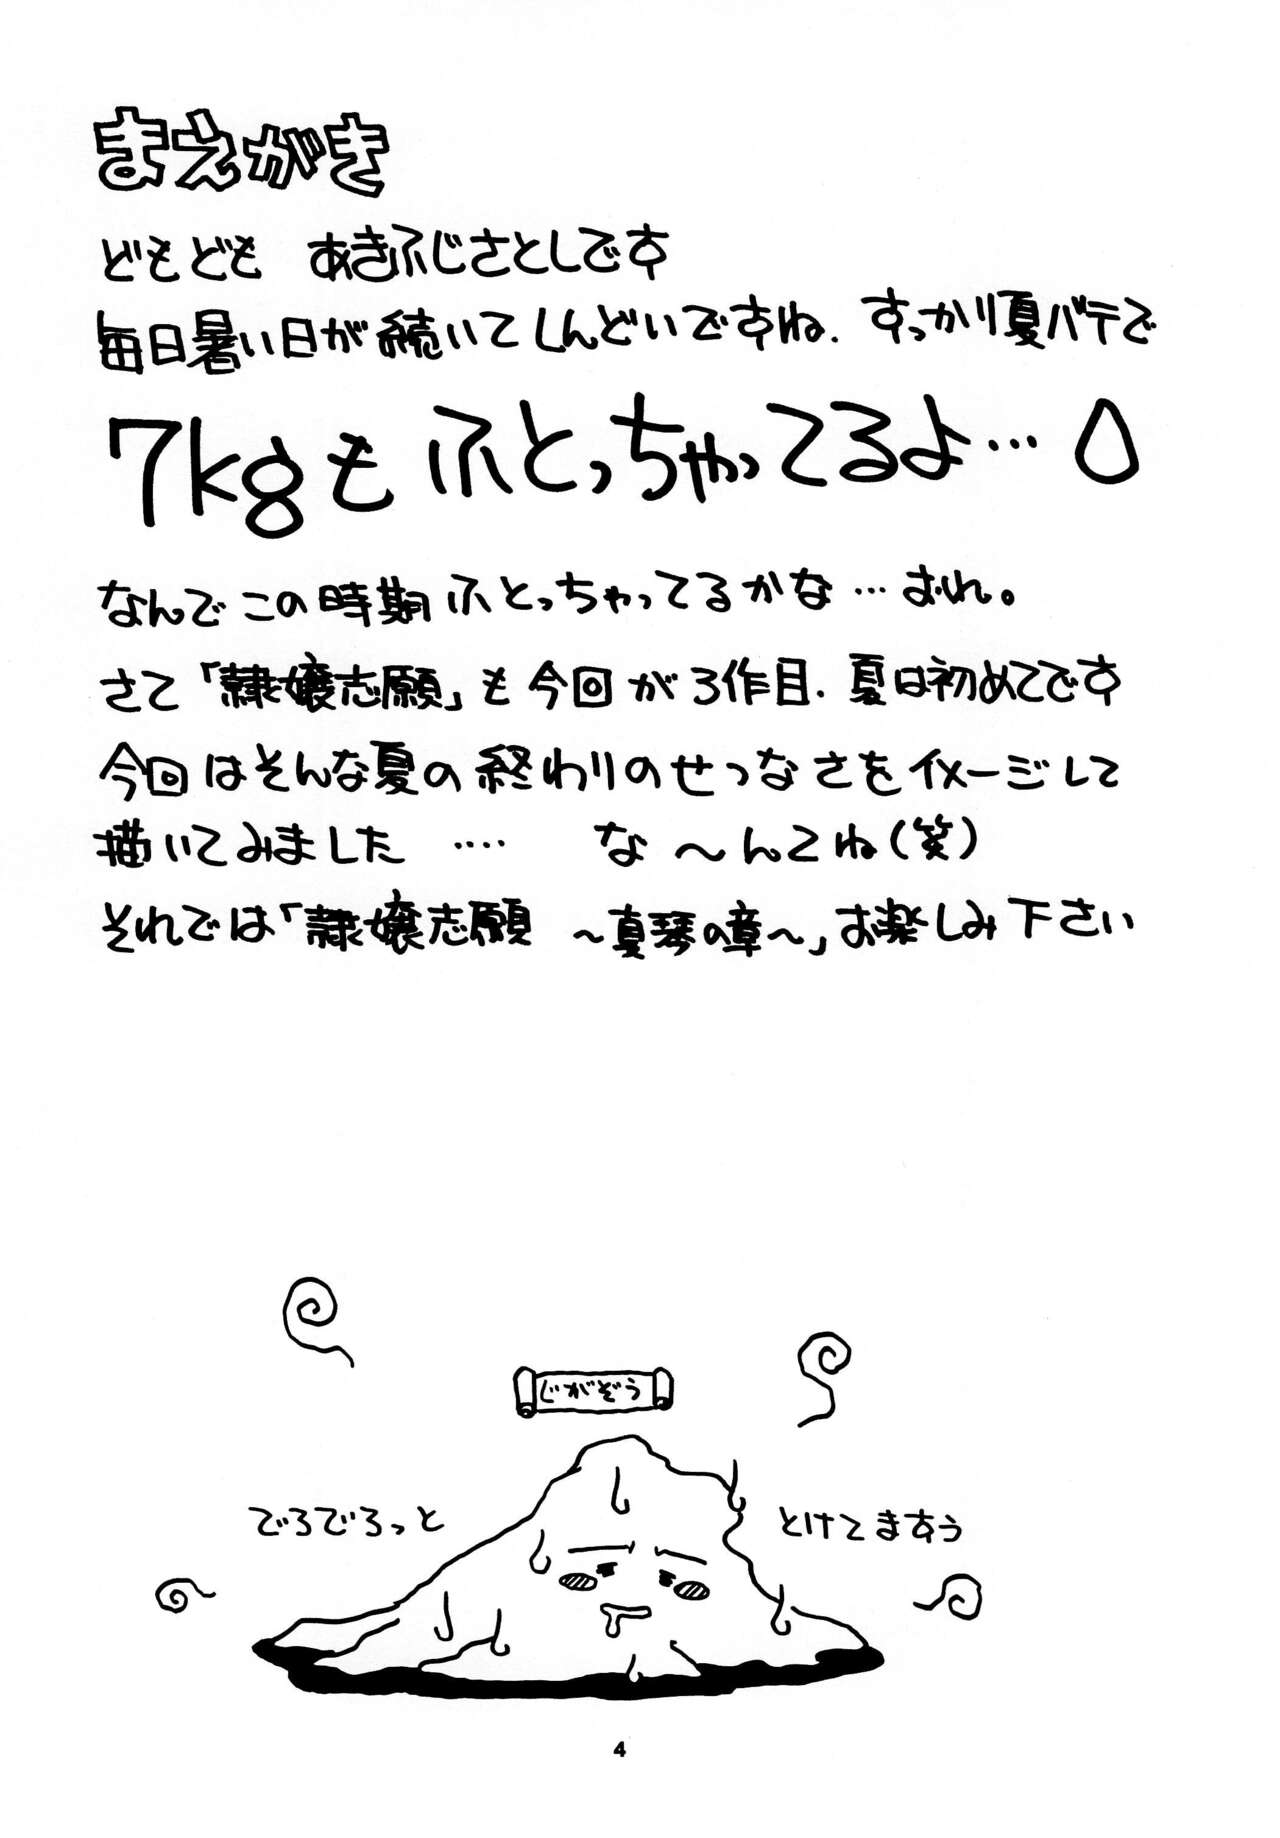 まえがき
どもども　あきふじさとしです
毎日暑い日が続いてしんどいですね．すっかり夏バテで
7kgもふとっちゃってるよ…
なんでこの時期ふとっちゃってるかな…おれ。
さて「隷嬢志願」も今回が3作目．夏は初めてです
今回はそんな夏の終わりのせつなさをイメージして
描いてみました‥‥　な〜んてね(笑)
それでは「隷嬢志願　〜真琴の章〜」お楽しみ下さい
じがぞう
でろでろっと　とけてますぅ
4